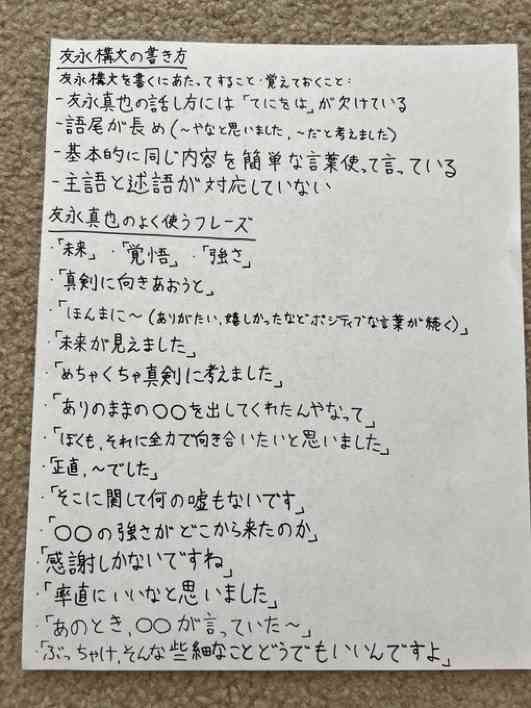 友永構文の書き方
友永構文を書くにあたってすること・覚えておくこと:
-友永真也の話し方には「てにをは」が欠けている
-語尾が長め(〜やなと思いました,〜だと考えました)
-基本的に同じ内容を簡単な言葉使って言っている
-主語と述語が対応していない
友永真也のよく使うフレーズ
・「未来」 ・「覚悟」 ・「強さ」
・「真剣に向きあおうと」
・「ほんまに〜(ありがたい,嬉しかったなどポジティブな言葉が続く)」
・「未来が見えました」
・「めちゃくちゃ真剣に考えました」
・「ありのままの〇〇を出してくれたんやなって」
・「ぼくも,それに全力で向き合いたいと思いました」
・「正直,〜でした」
・「そこに関して何の嘘もないです」
・「〇〇の強さがどこから来たのか」
・「感謝しかないですね」
・「率直にいいなと思いました」
・「あのとき,〇〇が言っていた〜」
・「ぶっちゃけ,そんな些細なことどうでもいいんですよ」